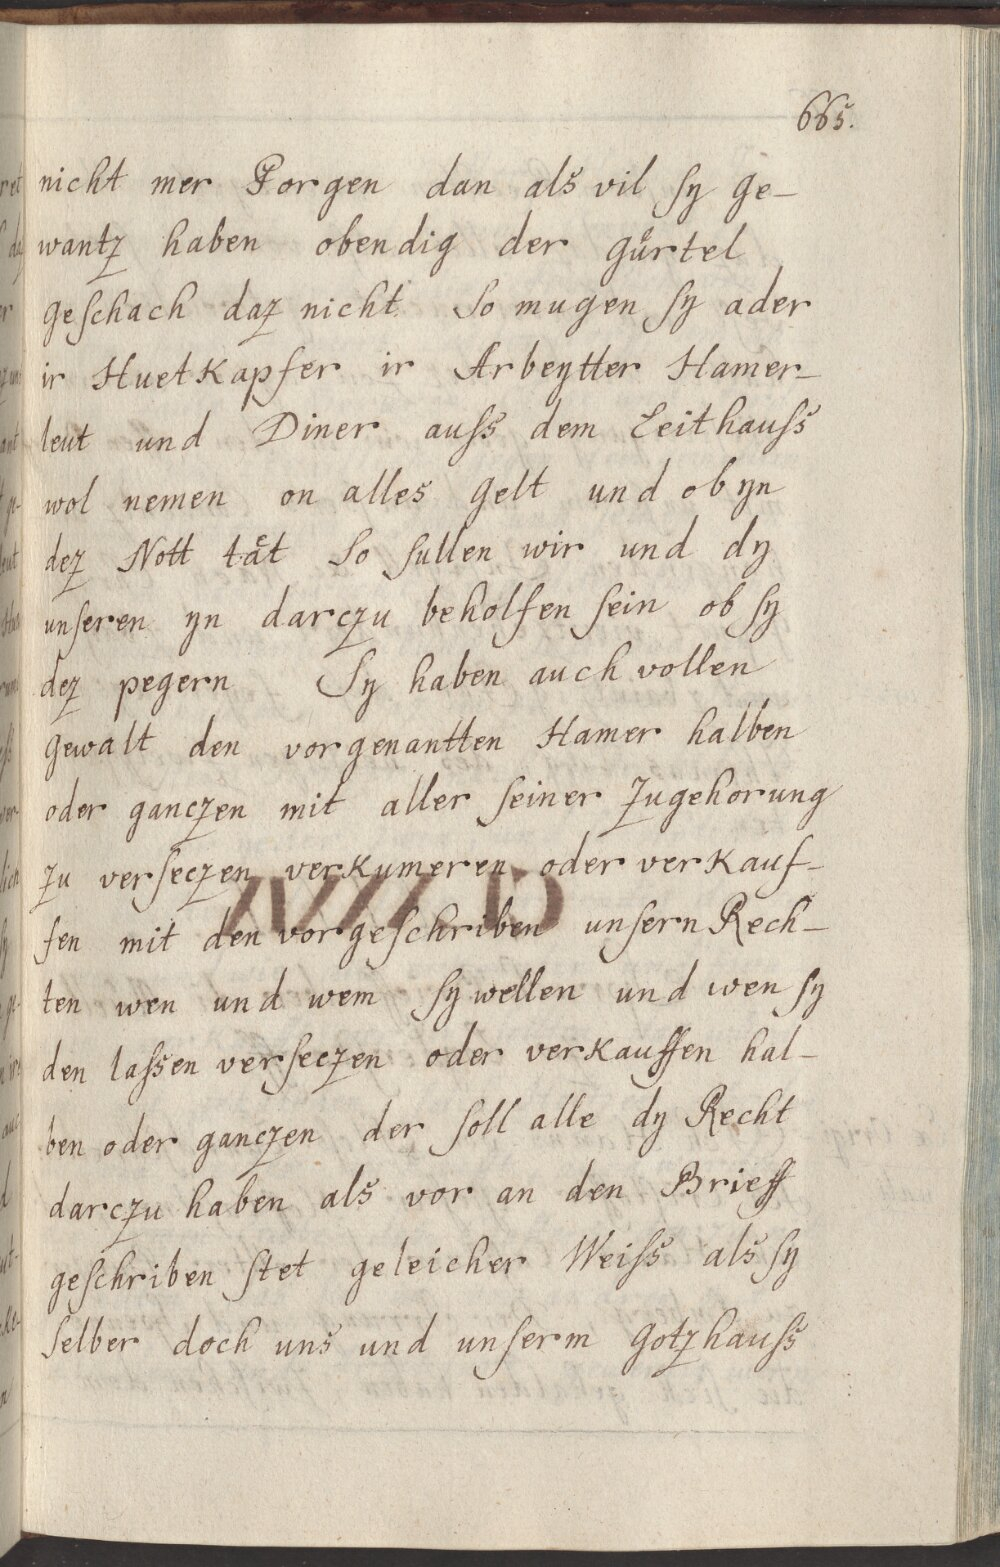 665.
nicht mer Porgen dan als vil sy ge-
wantz haben obendig der guͤrtel
geschach daz nicht So mugen sy ader
ir Huetkapfer ir Arbeytter Hamer-
leut und Diner auss dem Leithauss
wol nemen on alles gelt und ob yn
dez Nott taͤt So sullen wir und dy
unseren yn darczu beholfen sein ob sy
dez pegern Sy haben auch vollen
gewalt den vorgenantten Hamer halben
oder ganczen mit aller seiner zugehorung
zu verseczen verkumeren oder verkauf-
fen mit den vorgeschriben unsern Rech-
ten wen und wem sy wellen und wen sy
den lassen verseczen oder verkauffen hal-
ben oder ganczen der soll alle dy Recht
darczu haben als vor an den Brieff
geschriben stet geleicher Weiss als sy
selber doch uns und unserm Gotzhauss